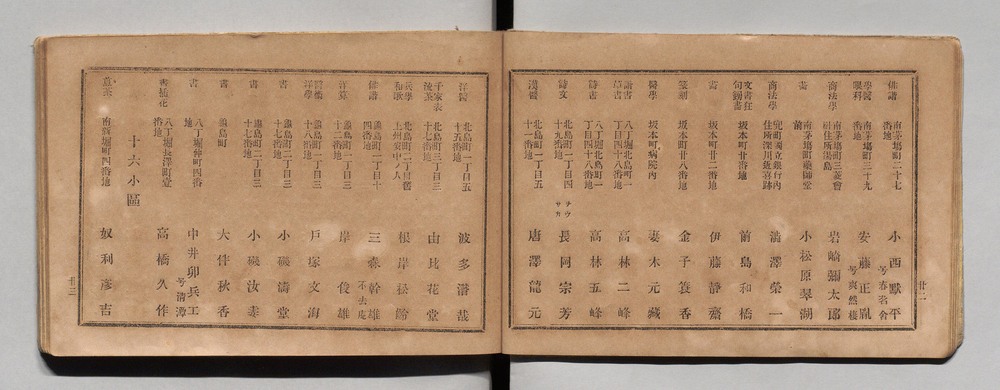 俳諧 南茅場町二十七番地 小西默平 号春岱舍
學醫眼科 南茅場町三十九番地 安藤正胤 号爽然樓
商法學 南茅場町三菱會社住所湯島 岩崎彌太郎
畫 南茅場町藥師堂前 小松原翠湖
商法學 兜町國立銀行内住所深川近喜跡 澁澤榮一
皮書狂句錦畫 坂本町廿番地 前島和橋
畫 坂本町廿二番地 伊藤靜齋
篆刻 坂本町廿八番地 金子簑香
醫學 坂本町病院内 妻木元藏
詩書畫 八丁堀北島町一丁目四十八番地 高林二峰
詩書 八丁堀北島町一丁目四十八番地 高林五峰
詩文 北島町一丁目四十九番地 長岡宗芳 ナヲサカ
漢醫 北島町一丁目五十一番地 唐澤龍元
廿二
洋醫 北島町一丁目五十五番地 波多潛哉
千家表流茶 北島町三丁目三十七番地 由比花堂
兵學和歌 北島町二ノ八目舊上州安中ノ人 根岸松齡
俳諧 龜島町一丁目十四番地 三森幹雄 不去庵
洋算 龜島町一丁目三十二番地 岸俊雄
醫術洋學 龜島町一丁目三十八番地 戸塚文海
書 龜島町二丁目三十七番地 小磯濤堂
書 龜島町二丁目三十七番地 小磯汝素
書 龜島町 大伴秋香
書 八丁堀仲町四番地 中井卯兵工 号清潭
書插花 八丁堀長澤町壹番地 高橋久作
十六小區
煎茶 南新堀町四番地 奴利彦吉
廿三